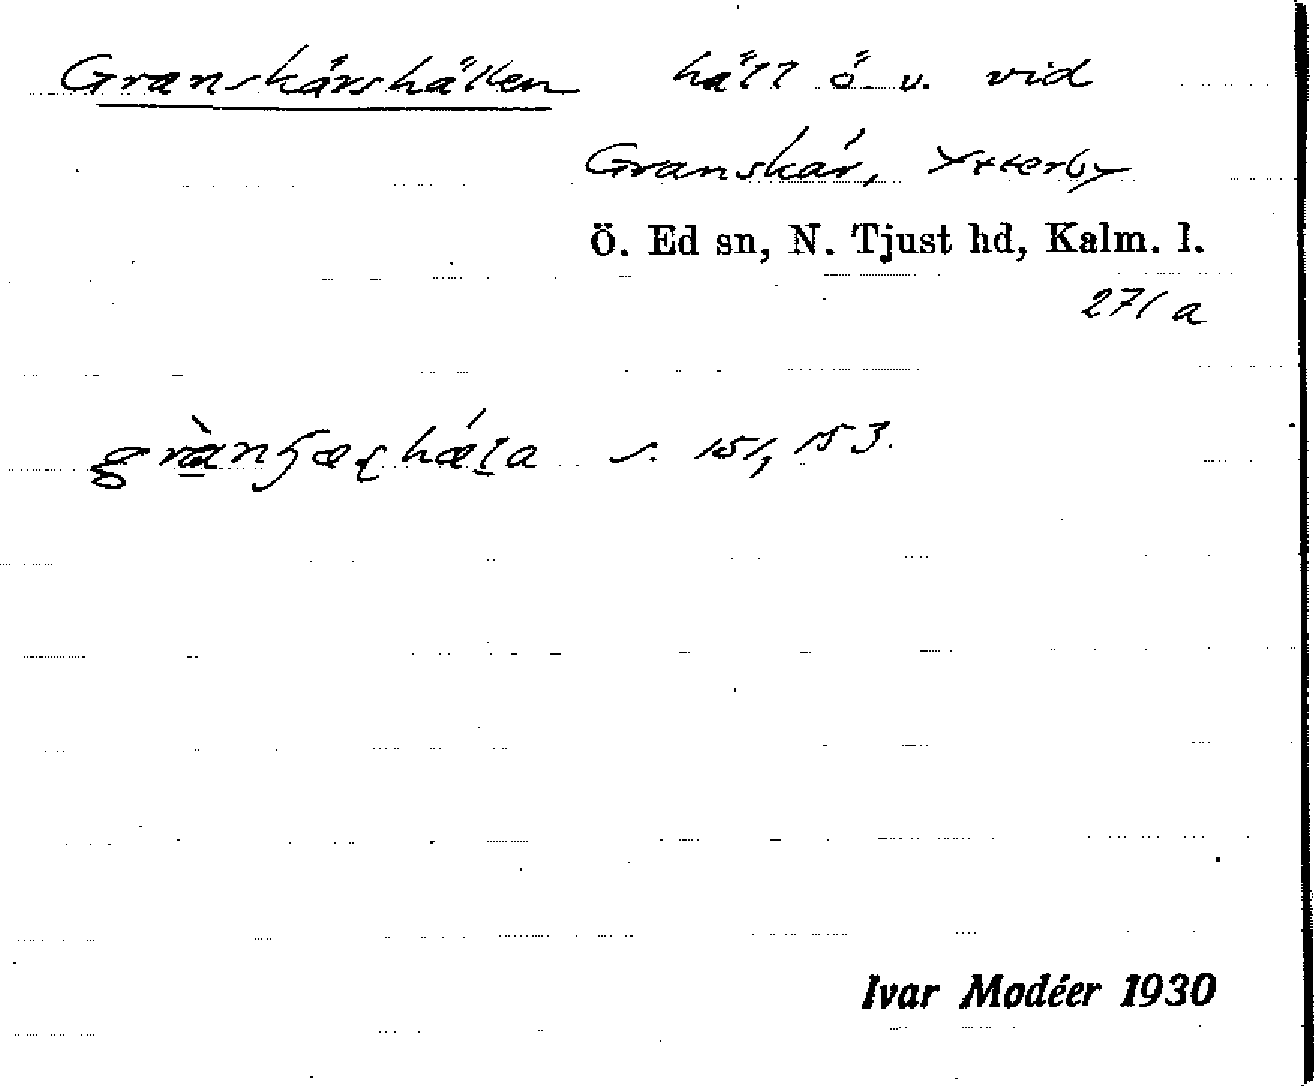 Granskärshällen häll ö v. vid
Granskär, Ytterby
Ö. Ed sn, N. Tjust hd, Kalm. l.
271 a
s. 151, 153.
Ivar Modéer 1930